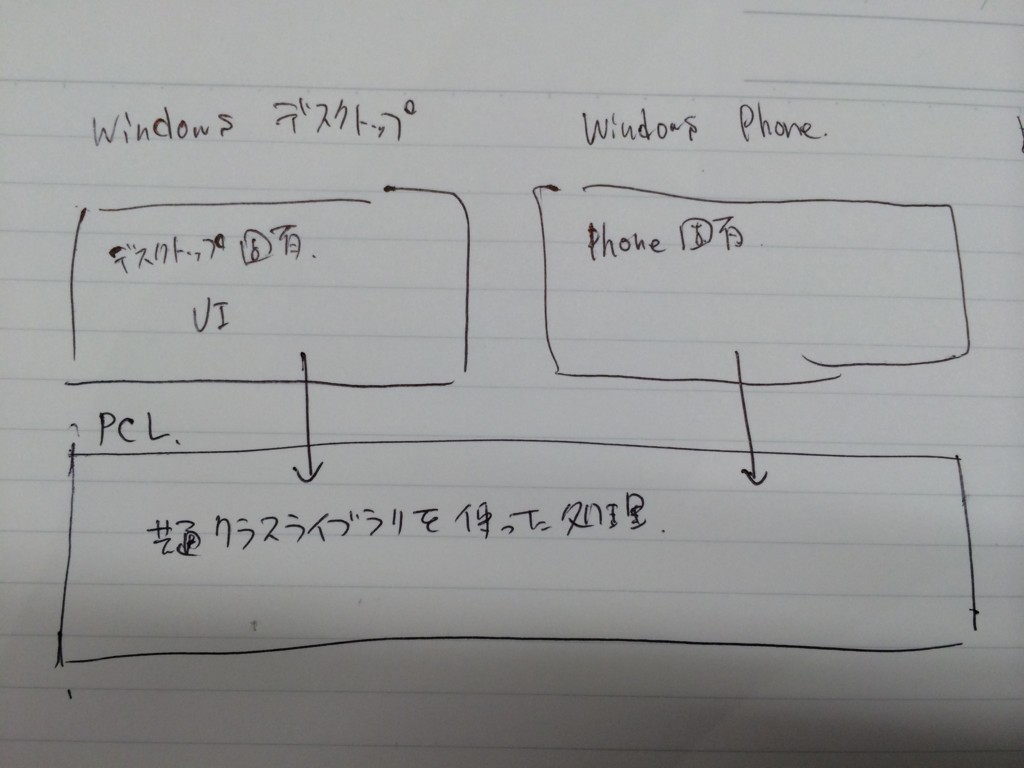 Windows デスクトップ
Windows Phone.
デスクトップ固有.
UI
Phone 固有
PCL.
共通クラスライブラリを使った処理.